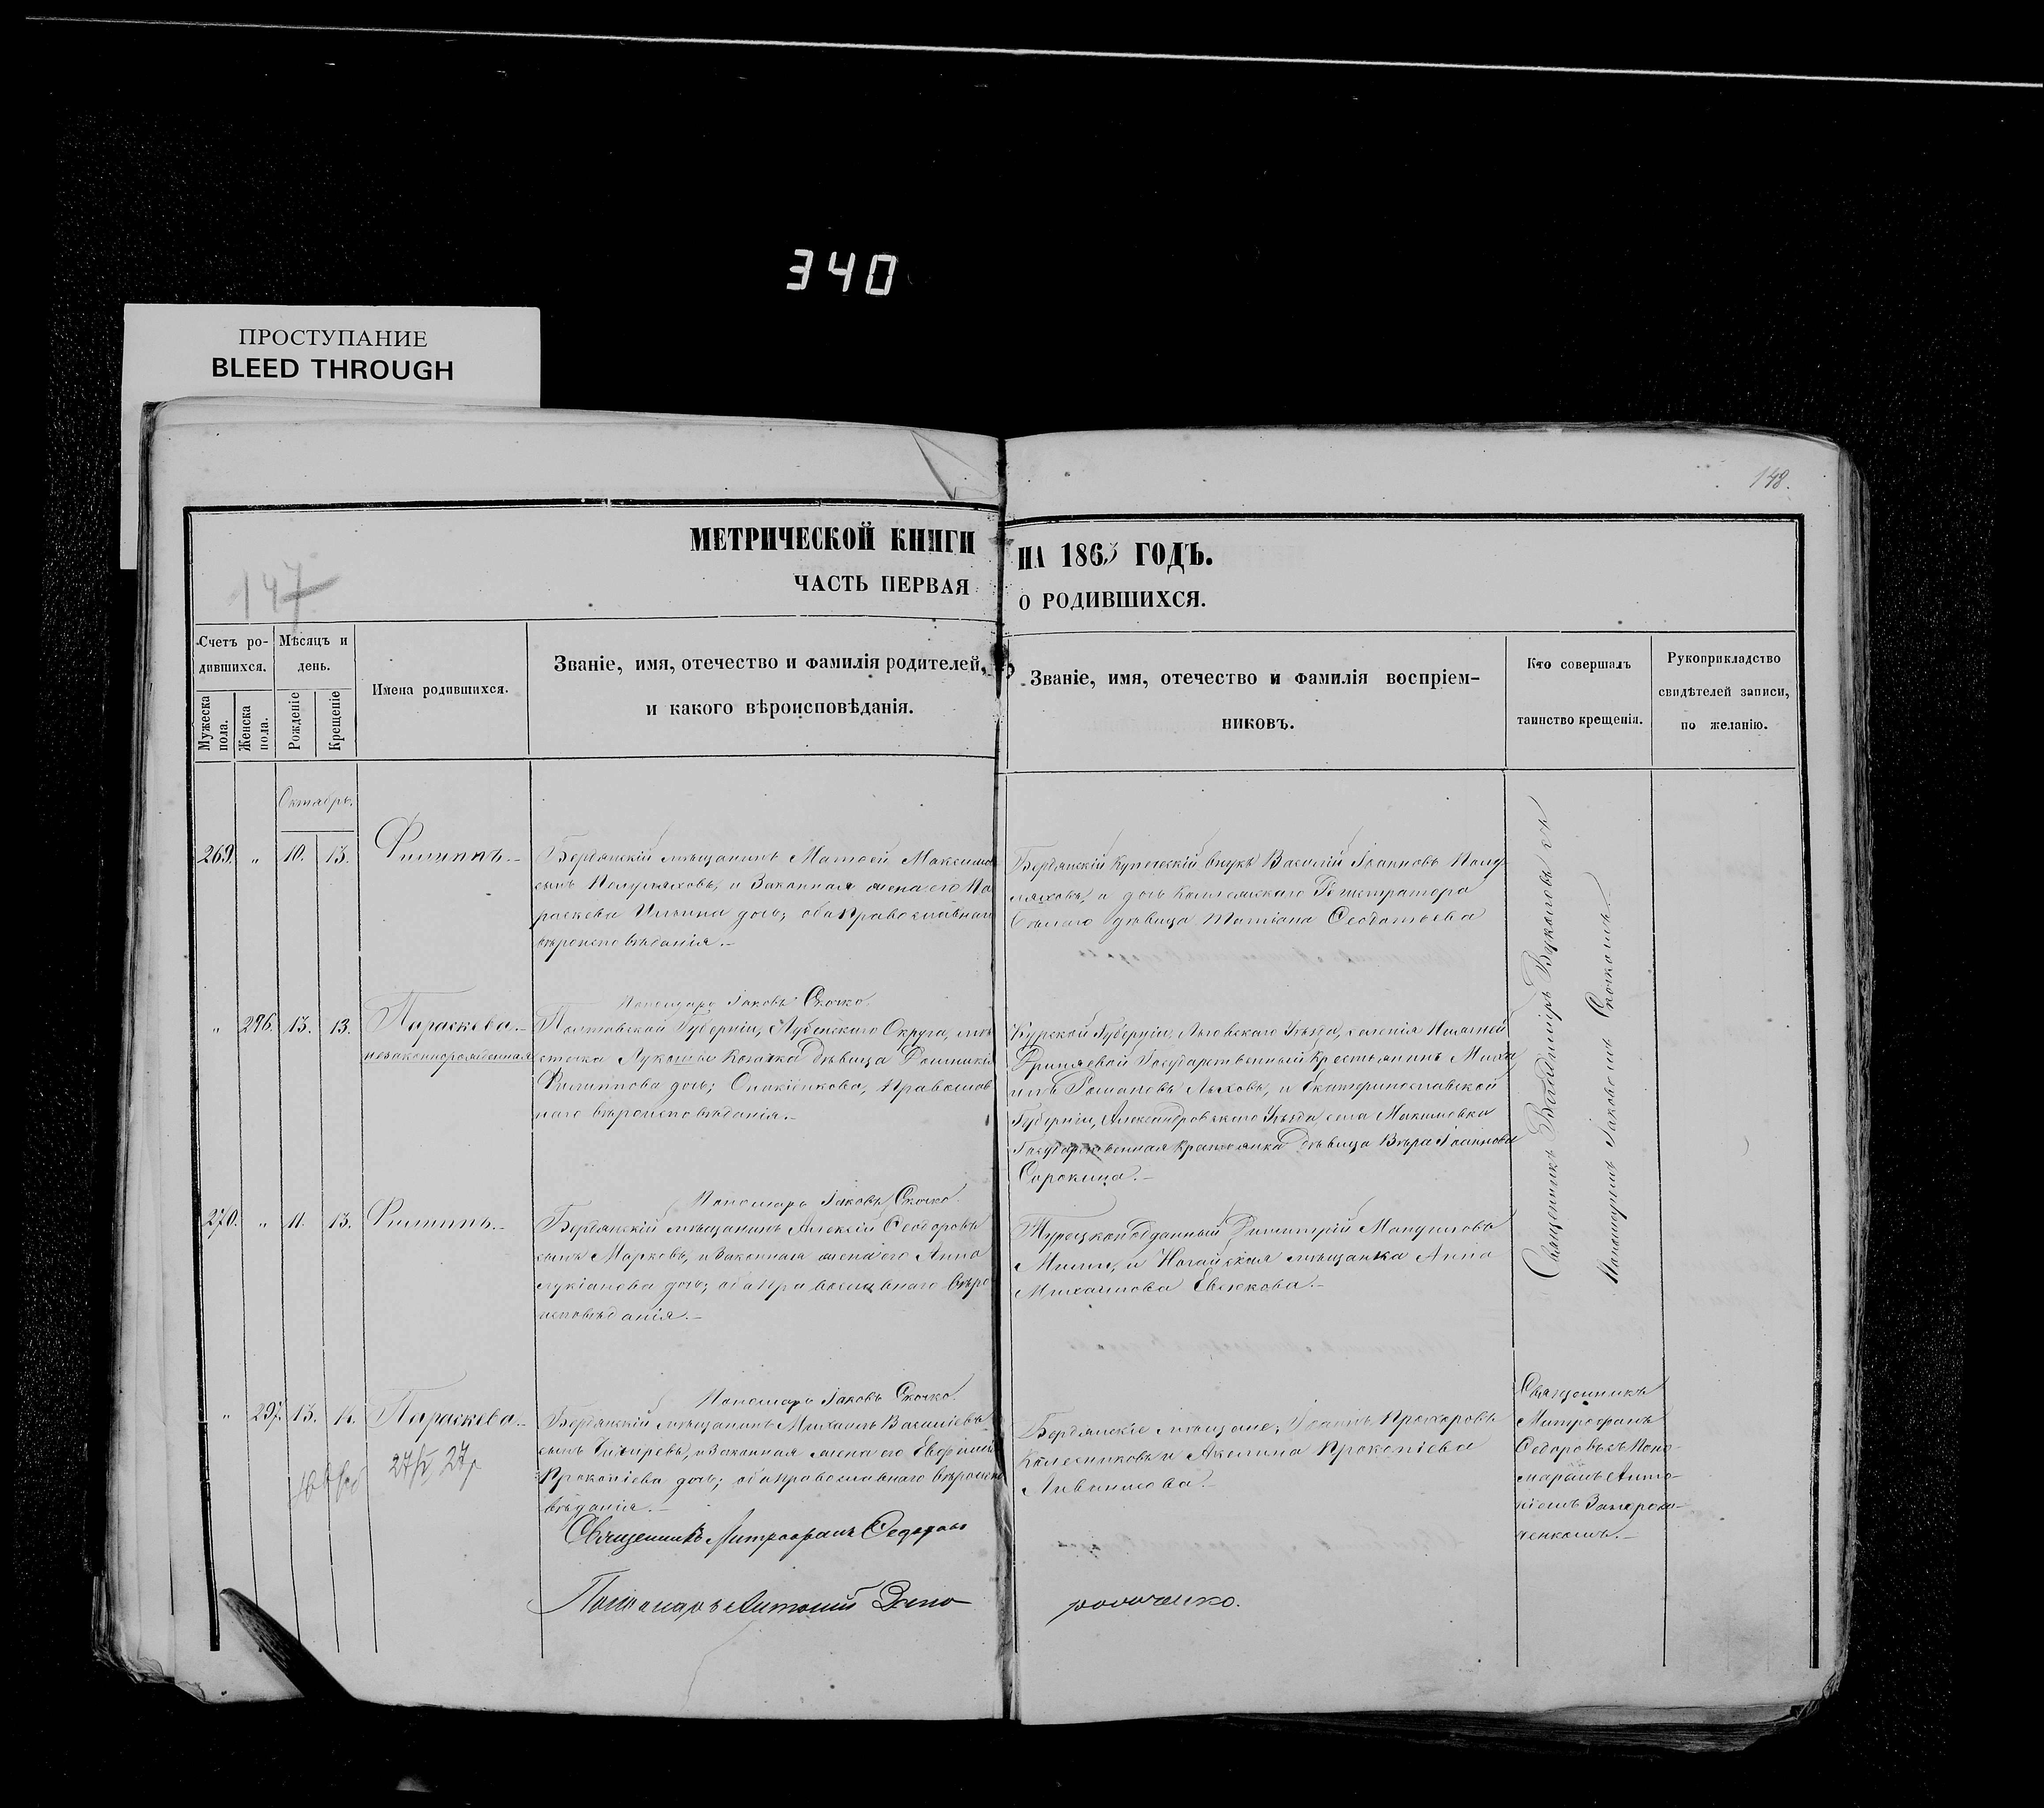 340
ПРОСТУПАНИЕ
BLEED THROUGH
148.
147
МЕТРИЧЕСКОЙ КНИГИ НА 1863 ГОДЪ.
ЧАСТЬ ПЕРВАЯ О РОДИВШИХСЯ.
Счетъ ро-
дившихся.
Мужеска пола.
Женска пола.
Мѣсяцъ и
день.
Рожденіе
Крещеніе
Имена родившихся.
Званіе, имя, отечество и фамилія родителей,
и какого вѣроисповѣданія.
Званіе, имя, отечество и фамилія воспріем-
никовъ.
Кто совершалъ
таинство крещенія.
Рукоприкладство
свидѣтелей записи,
по желанію.
Октябрь.
269. " 10. 13. Филиппъ.
Бердянскій мѣщанинъ Матѳей Максимовъ
сынъ Полуляховъ, и Законная жена его Па
раскева Ильина дочь; оба православнаго
вѣроисповѣданія.
Бердянскій Купеческій внукъ Василій Іоанновъ Полу
ляховъ, и дочь Коллежскаго Регистратора
дѣвица Татіана Ѳеодотьева
Пономарь Іаковъ Скочко.
" 296. 13. 13. Параскева.
незаконнорожденная
Полтавской Губерніи, Лубенскаго Округа, мѣ
стечка Лукомья Козачка дѣвица Домникія
Филиппова дочь; православ
наго вѣроисповѣданія.
Курской Губерніи, Льговскаго Уѣзда, селенія Нижней
Государственный Крестьянинъ Миха
илъ Романовъ Ляховъ, и Екатеринославской
Губерніи, Александровскаго Уѣзда села
Государственная Крестьянка Дѣвица Вѣра Іоаннова
Сорокина.
Пономарь Іаковъ Скочко.
270. " 11. 13. Филиппъ.
Бердянскій мѣщанинъ Алексій Ѳеодоровъ
сынъ Марковъ, и Законная жена его Анна
Лукіанова дочь; оба православнаго вѣро
исповѣданія.
Турецкоподданный Димитрій
и Ногайская мѣщанка Анна
Михайлова Евсюкова.
Священникъ Владиміръ Вуколовъ съ
Пономаремъ Іаковомъ Скочкомъ.
Пономарь Іаковъ Скочко.
" 297. 13. 14. Параскева.
Бердянскій мѣщанинъ Михаилъ Васильевъ
сынъ и Законная жена его Евфимія
Прокопіева дочь; оба православнаго вѣроиспо
вѣданія.
Бердянскіе мѣщане, Іоаннъ Прохоровъ
Колесниковъ и Акелина Прокопіева
Священникъ
Митрофанъ
Ѳедоровъ съ Поно-
маремъ Анто-
ніемъ Запорож-
ченкомъ.
Священникъ Митрофанъ Ѳедоровъ
Пономарь Антоній Запо
рожченко.